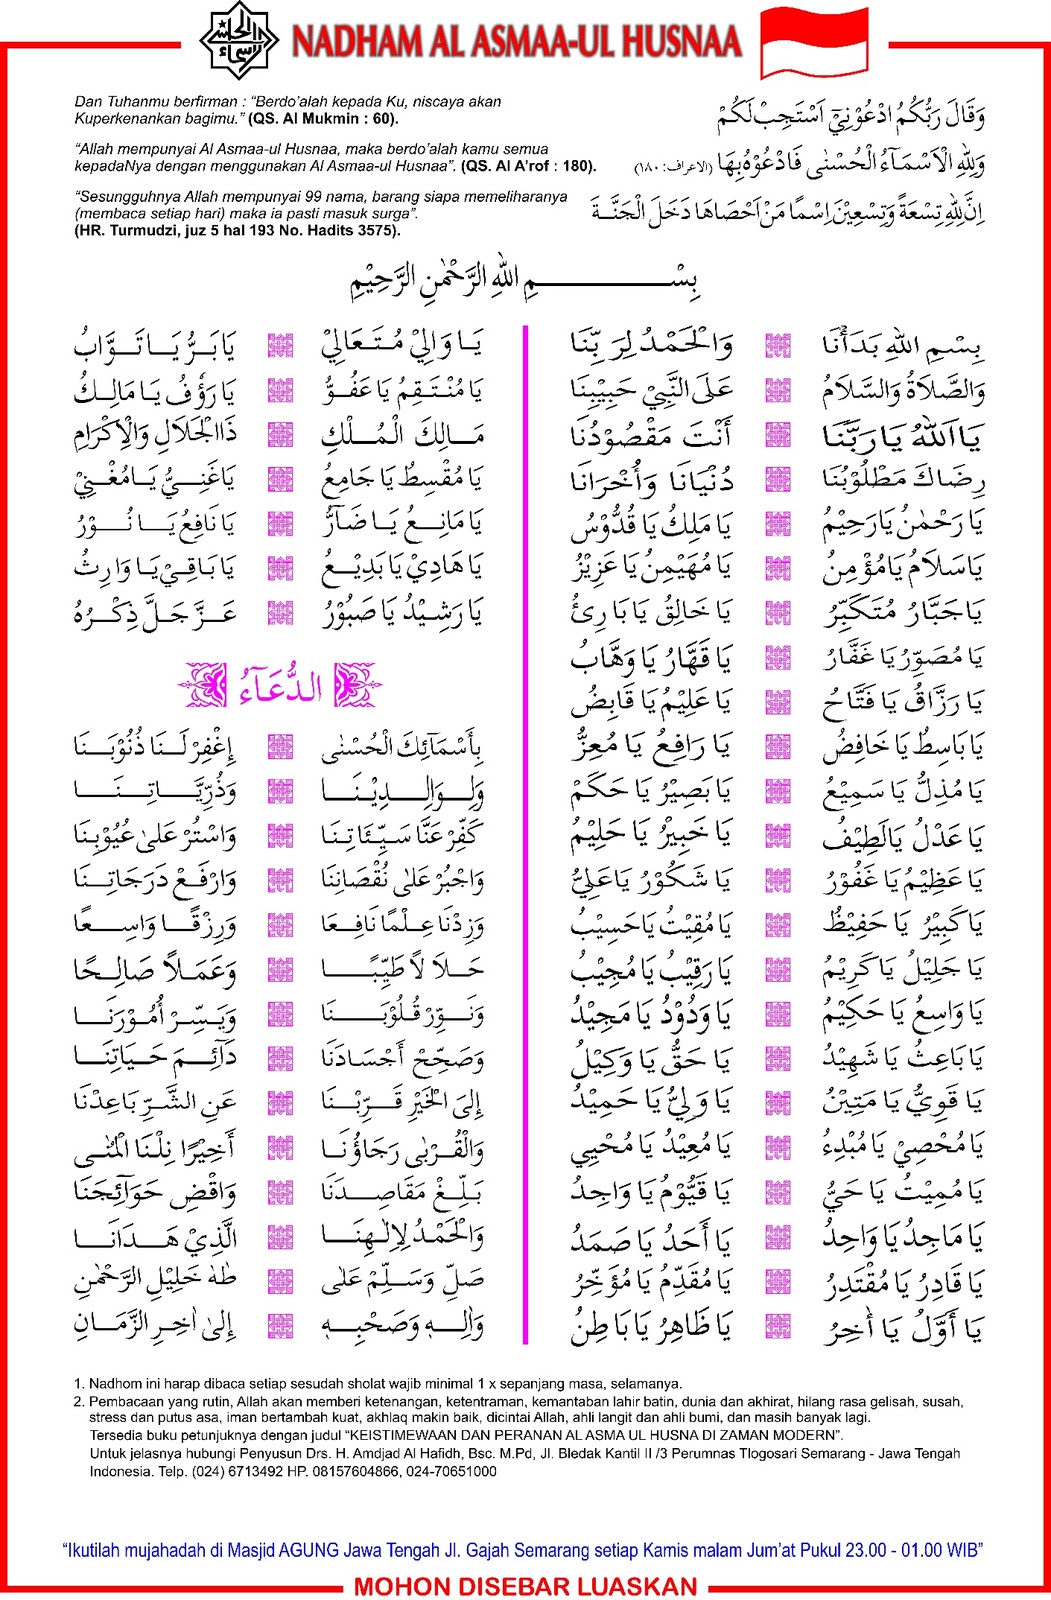 NADHAM AL ASMAA-UL HUSNAA
Dan Tuhanmu berfirman : “Berdo’alah kepada Ku, niscaya akan
Kuperkenankan bagimu.” (QS. Al Mukmin : 60).
وَقَالَ رَبُّكُمُ ادْعُوْنِيْٓ اَسْتَجِبْ لَكُمْ
“Allah mempunyai Al Asmaa-ul Husnaa, maka berdo’alah kamu semua
kepadaNya dengan menggunakan Al Asmaa-ul Husnaa”. (QS. Al A’rof : 180).
وَلِلّٰهِ الْاَسْمَآءُ الْحُسْنٰى فَادْعُوْهُ بِهَا (الاعراف: ١٨٠)
“Sesungguhnya Allah mempunyai 99 nama, barang siapa memeliharanya
(membaca setiap hari) maka ia pasti masuk surga”.
(HR. Turmudzi, juz 5 hal 193 No. Hadits 3575).
اِنَّ لِلّٰهِ تِسْعَةً وَتِسْعِيْنَ اِسْمًا مَنْ اَحْصَاهَا دَخَلَ الْجَنَّةَ
بِسْمِ اللّٰهِ الرَّحْمٰنِ الرَّحِيْمِ
بِسْمِ اللّٰهِ بَدَأْنَا وَالْحَمْدُ لِرَبِّنَا
وَالصَّلَاةُ وَالسَّلَامُ عَلَى النَّبِيْ حَبِيْبِنَا
يَا اَللّٰهُ يَا رَبَّنَا أَنْتَ مَقْصُوْدُنَا
رِضَاكَ مَطْلُوْبُنَا دُنْيَانَا وَأُخْرَانَا
يَا رَحْمٰنُ يَا رَحِيْمُ يَا مَلِكُ يَا قُدُّوْسُ
يَا سَلَامُ يَا مُؤْمِنُ يَا مُهَيْمِنُ يَا عَزِيْزُ
يَا جَبَّارُ مُتَكَبِّرُ يَا خَالِقُ يَا بَارِئُ
يَا مُصَوِّرُ يَا غَفَّارُ يَا قَهَّارُ يَا وَهَّابُ
يَا رَزَّاقُ يَا فَتَّاحُ يَا عَلِيْمُ يَا قَابِضُ
يَا بَاسِطُ يَا خَافِضُ يَا رَافِعُ يَا مُعِزُّ
يَا مُذِلُّ يَا سَمِيْعُ يَا بَصِيْرُ يَا حَكَمُ
يَا عَدْلُ يَا لَطِيْفُ يَا خَبِيْرُ يَا حَلِيْمُ
يَا عَظِيْمُ يَا غَفُوْرُ يَا شَكُوْرُ يَا عَلِيُّ
يَا كَبِيْرُ يَا حَفِيْظُ يَا مُقِيْتُ يَا حَسِيْبُ
يَا جَلِيْلُ يَا كَرِيْمُ يَا رَقِيْبُ يَا مُجِيْبُ
يَا وَاسِعُ يَا حَكِيْمُ يَا وَدُوْدُ يَا مَجِيْدُ
يَا بَاعِثُ يَا شَهِيْدُ يَا حَقُّ يَا وَكِيْلُ
يَا قَوِيُّ يَا مَتِيْنُ يَا وَلِيُّ يَا حَمِيْدُ
يَا مُحْصِيْ يَا مُبْدِءُ يَا مُعِيْدُ يَا مُحْيِي
يَا مُمِيْتُ يَا حَيُّ يَا قَيُّوْمُ يَا وَاجِدُ
يَا مَاجِدُ يَا وَاحِدُ يَا أَحَدُ يَا صَمَدُ
يَا قَادِرُ يَا مُقْتَدِرُ يَا مُقَدِّمُ يَا مُؤَخِّرُ
يَا أَوَّلُ يَا اٰخِرُ يَا ظَاهِرُ يَا بَاطِنُ
يَا وَالِيْ مُتَعَالِيْ يَا بَرُّ يَا تَوَّابُ
يَا مُنْتَقِمُ يَا عَفُوُّ يَا رَؤُفُ يَا مَالِكُ
مَالِكَ الْمُلْكِ ذَا الْجَلَالِ وَالْاِكْرَامِ
يَا مُقْسِطُ يَا جَامِعُ يَا غَنِيُّ يَا مُغْنِيْ
يَا مَانِعُ يَا ضَآرُّ يَا نَافِعُ يَا نُوْرُ
يَا هَادِيْ يَا بَدِيْعُ يَا بَاقِيْ يَا وَارِثُ
يَا رَشِيْدُ يَا صَبُوْرُ عَزَّ جَلَّ ذِكْرُهُ
الدُّعَآءُ
بِأَسْمَآئِكَ الْحُسْنٰى إِغْفِرْ لَنَا ذُنُوْبَنَا
وَلِوَالِدِيْنَا وَذُرِّيَّاتِنَا
كَفِّرْ عَنَّا سَيِّئَاتِنَا وَاسْتُرْ عَلَى عُيُوْبِنَا
وَاجْبُرْ عَلَى نُقْصَانِنَا وَارْفَعْ دَرَجَاتِنَا
وَزِدْنَا عِلْمًا نَافِعَا وَرِزْقًا وَاسِعًا
حَلَالًا طَيِّبًا وَعَمَلًا صَالِحًا
وَنَوِّرْ قُلُوْبَنَا وَيَسِّرْ أُمُوْرَنَا
وَصَحِّحْ أَجْسَادَنَا دَآئِمَ حَيَاتِنَا
إِلَى الْخَيْرِ قَرِّبْنَا عَنِ الشَّرِّ بَاعِدْنَا
وَالْقُرْبٰى رَجَاؤُنَا أَخِيْرًا نِلْنَا الْمُنٰى
بَلِّغْ مَقَاصِدَنَا وَاقْضِ حَوَائِجَنَا
وَالْحَمْدُ لِاِلٰهِنَا الَّذِيْ هَدَانَا
صَلِّ وَسَلِّمْ عَلٰى طٰهٰ خَلِيْلِ الرَّحْمٰنِ
وَاٰلِهٖ وَصَحْبِهٖ إِلٰى اٰخِرِ الزَّمَانِ
1. Nadhom ini harap dibaca setiap sesudah sholat wajib minimal 1 x sepanjang masa, selamanya.
2. Pembacaan yang rutin, Allah akan memberi ketenangan, ketentraman, kemantaban lahir batin, dunia dan akhirat, hilang rasa gelisah, susah,
stress dan putus asa, iman bertambah kuat, akhlaq makin baik, dicintai Allah, ahli langit dan ahli bumi, dan masih banyak lagi.
Tersedia buku petunjuknya dengan judul “KEISTIMEWAAN DAN PERANAN AL ASMA UL HUSNA DI ZAMAN MODERN”.
Untuk jelasnya hubungi Penyusun Drs. H. Amdjad Al Hafidh, Bsc. M.Pd, Jl. Bledak Kantil II /3 Perumnas Tlogosari Semarang - Jawa Tengah
Indonesia. Telp. (024) 6713492 HP. 08157604866, 024-70651000
“Ikutilah mujahadah di Masjid AGUNG Jawa Tengah Jl. Gajah Semarang setiap Kamis malam Jum’at Pukul 23.00 - 01.00 WIB”
MOHON DISEBAR LUASKAN